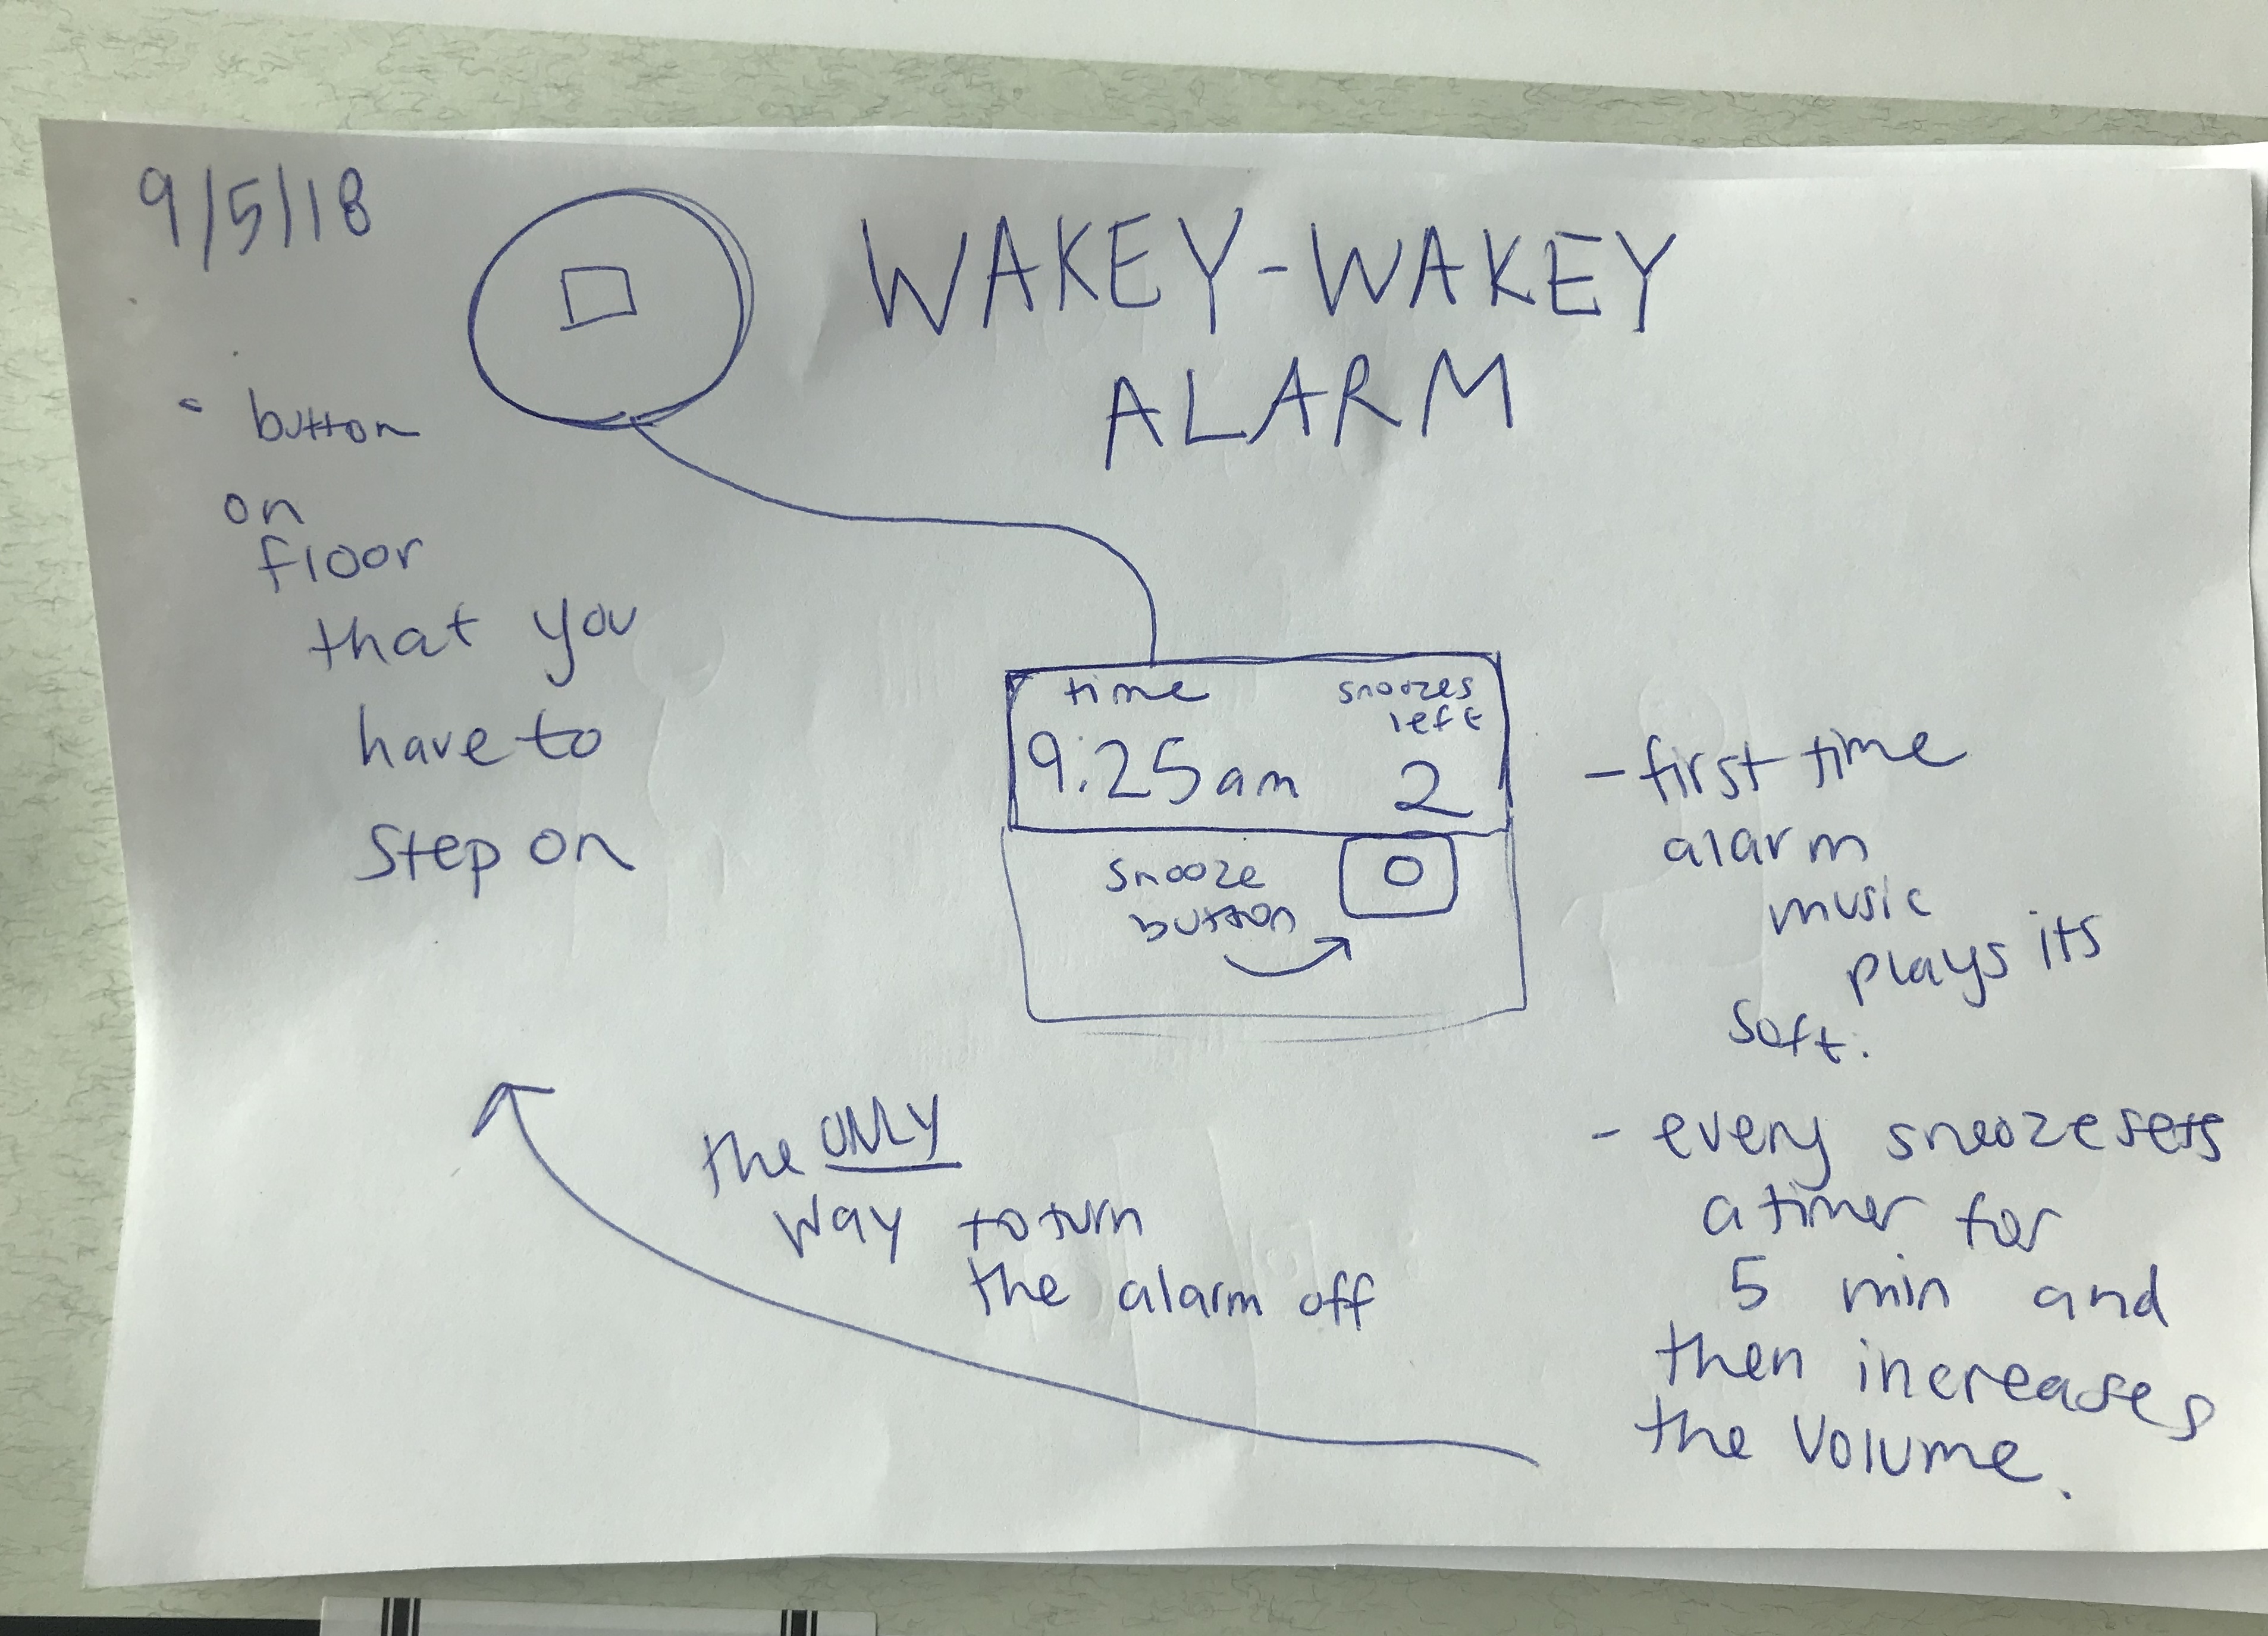 9/5/18
WAKEY-WAKEY
ALARM
- button
on
floor
that you
have to
step on
time
9:25am
snoozes
left
2
snooze
button
- first time
alarm
music
plays its
soft.
- every snooze sets
a timer for
5 min and
then increases
the volume.
the ONLY
way to turn
the alarm off